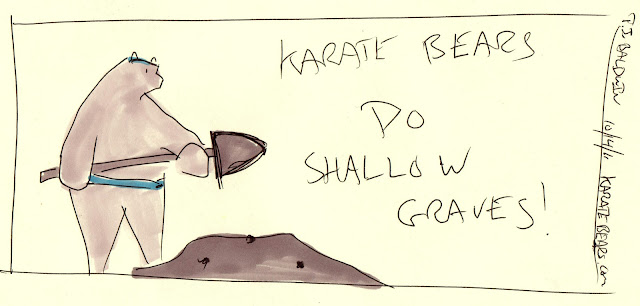 KARATE BEARS
DO
SHALLOW
GRAVES!
T.J. BALDWIN 10/4/11 KARATEBEARS.com